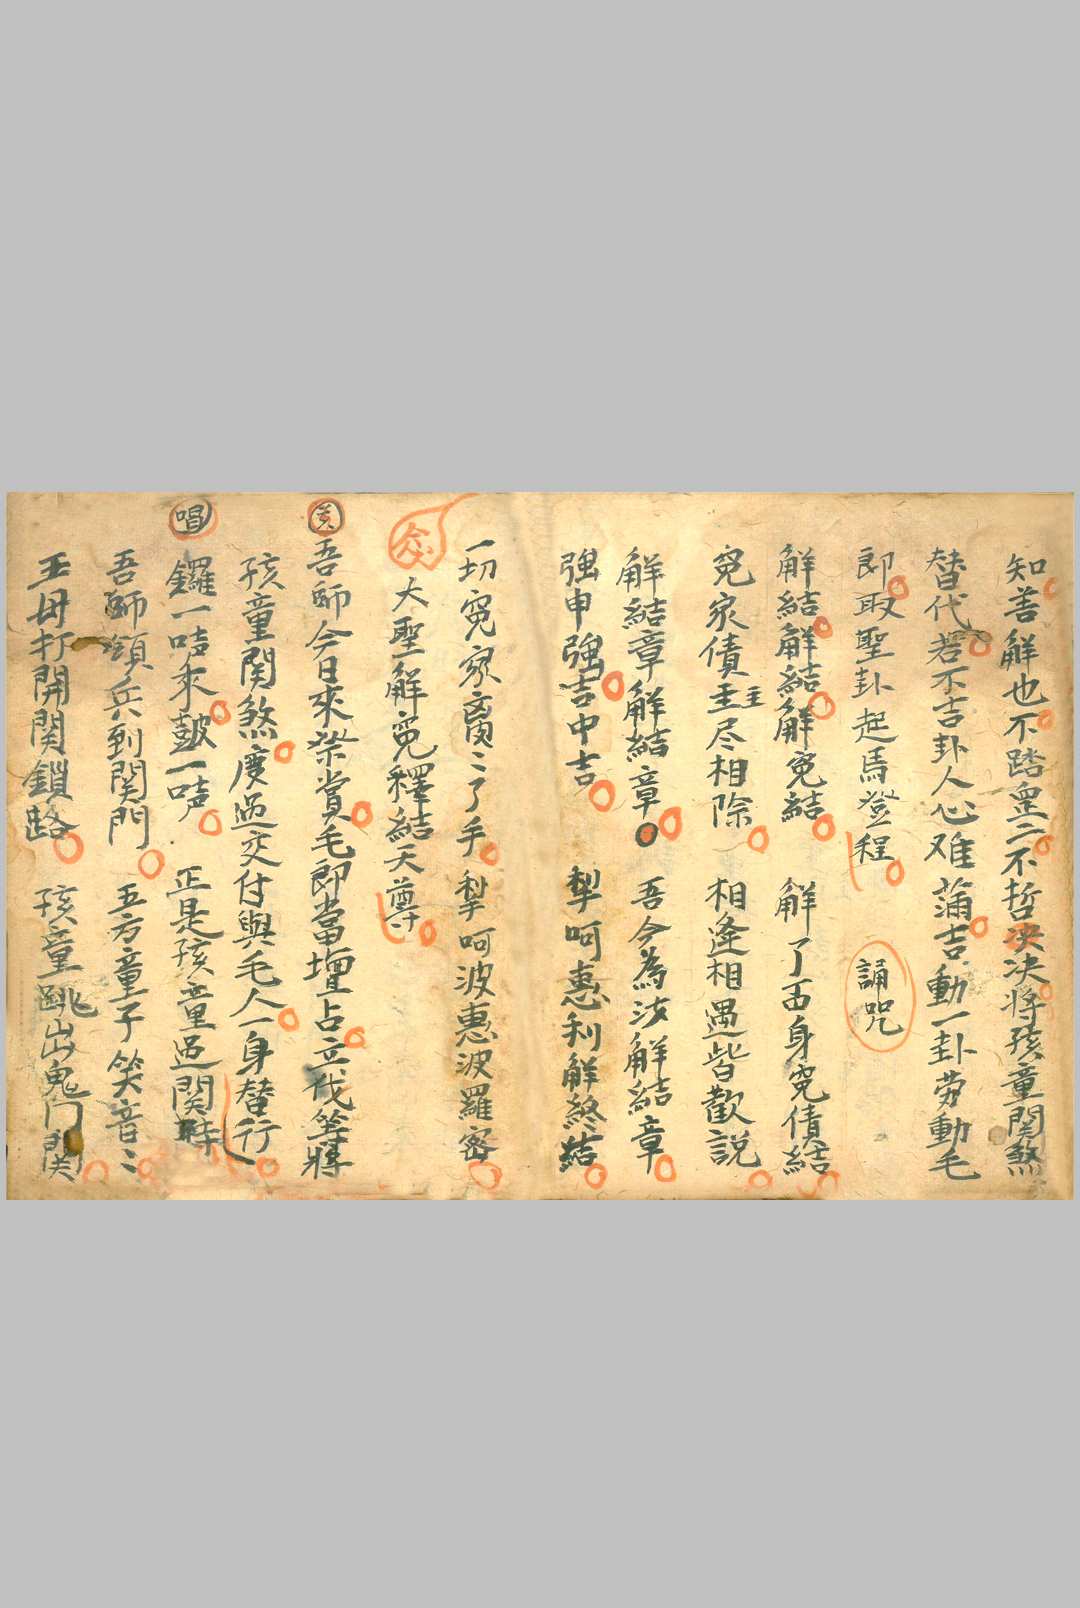 知善解也不踏皇二不哲决决將孩童関煞
替代若不吉卦人心难蒲吉動一卦劳動毛
郎取聖卦起馬登程 誦咒
解結解結解寃結 解了吾身寃債結
寃家債主主尽相除 相逢相遇皆歡説
解結章解結章 吾今為汝解結章
強申強吉中吉 犁呵惠利解終結
一切寃家離〻了手 犁呵波惠波羅密
众 大聖解寃釋結天尊
吾師今日來梁賞毛郎當壇占立我等將
孩童関煞度過交付與毛人一身替行
唱 鑼一唛來皷一唛 正是孩童過関時
吾師領兵到関門 五方童子笑音〻
王母打開関鎖路 孩童跳出鬼门関